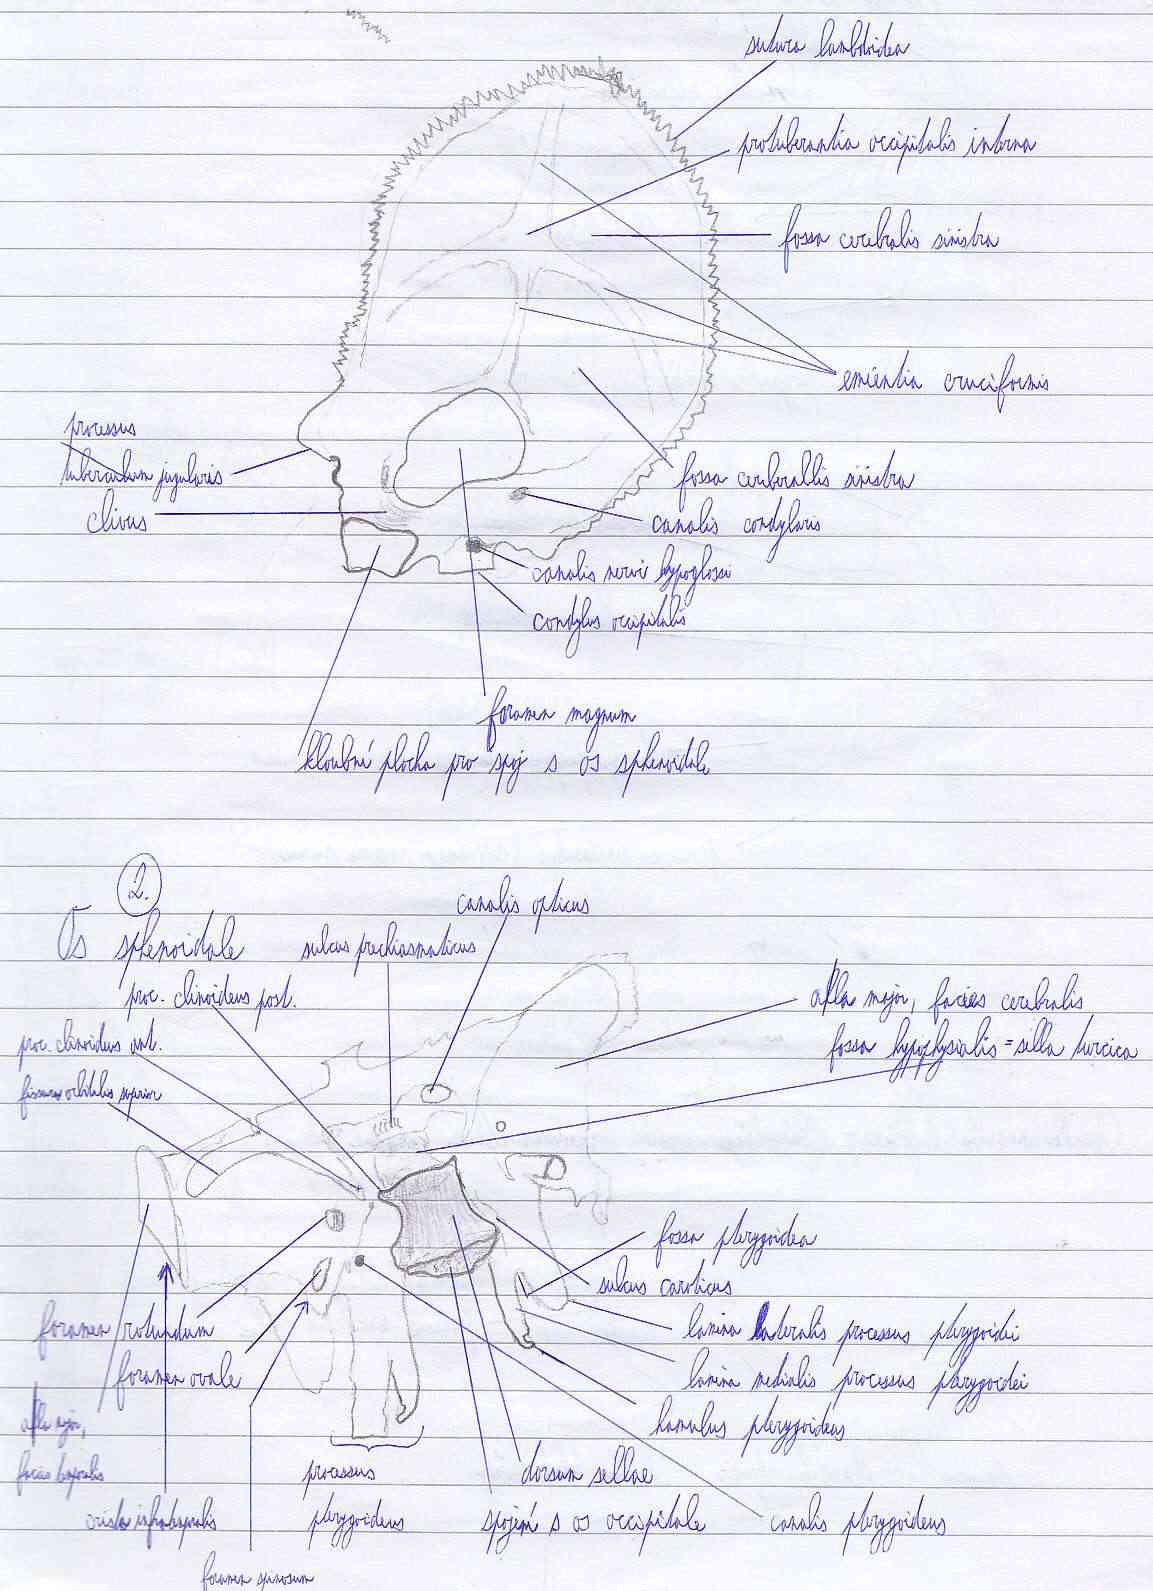 sutura lambdoidea
protuberantia occipitalis interna
fossa cerebralis sinistra
eminentia cruciformis
processus
tuberculum jugularis
clivus
fossa cerberallis sinistra
canalis condylaris
canalis nervi hypoglossi
condylus occipitalis
foramen magnum
kloubní plocha pro spoj s os sphenoidale
2.
Os sphenoidale
canalis opticus
sulcus prechiasmaticus
proc. clinoideus post.
proc. clinoideus ant.
fissura orbitalis superior
alla major, facies cerebralis
fossa hypophysialis = sella turcica
fossa pterygoidea
sulcus caroticus
lamina lateralis processus pterygoidei
lamina medialis processus pterygoidei
hamulus pterygoideus
foramen rotundum
foramen ovale
alla major,
facies temporalis
crista infratemporalis
foramen spinosum
processus
pterygoideus
dorsum sellae
spojení s os occipitale
canalis pterygoideus